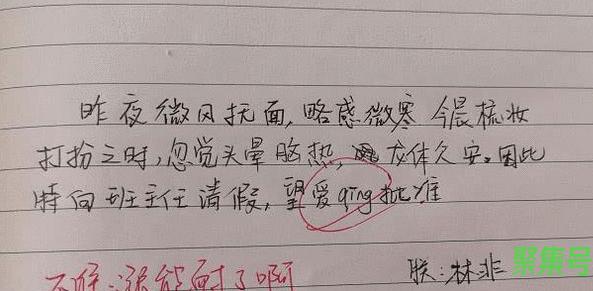 昨夜微风抚面,略感微寒 今晨梳妆
打扮之时,忽觉头晕脑热, 龙体欠安。因此
特向班主任请假,望爱qing批准
朕:林非
不准:涨能耐了啊
聚集号